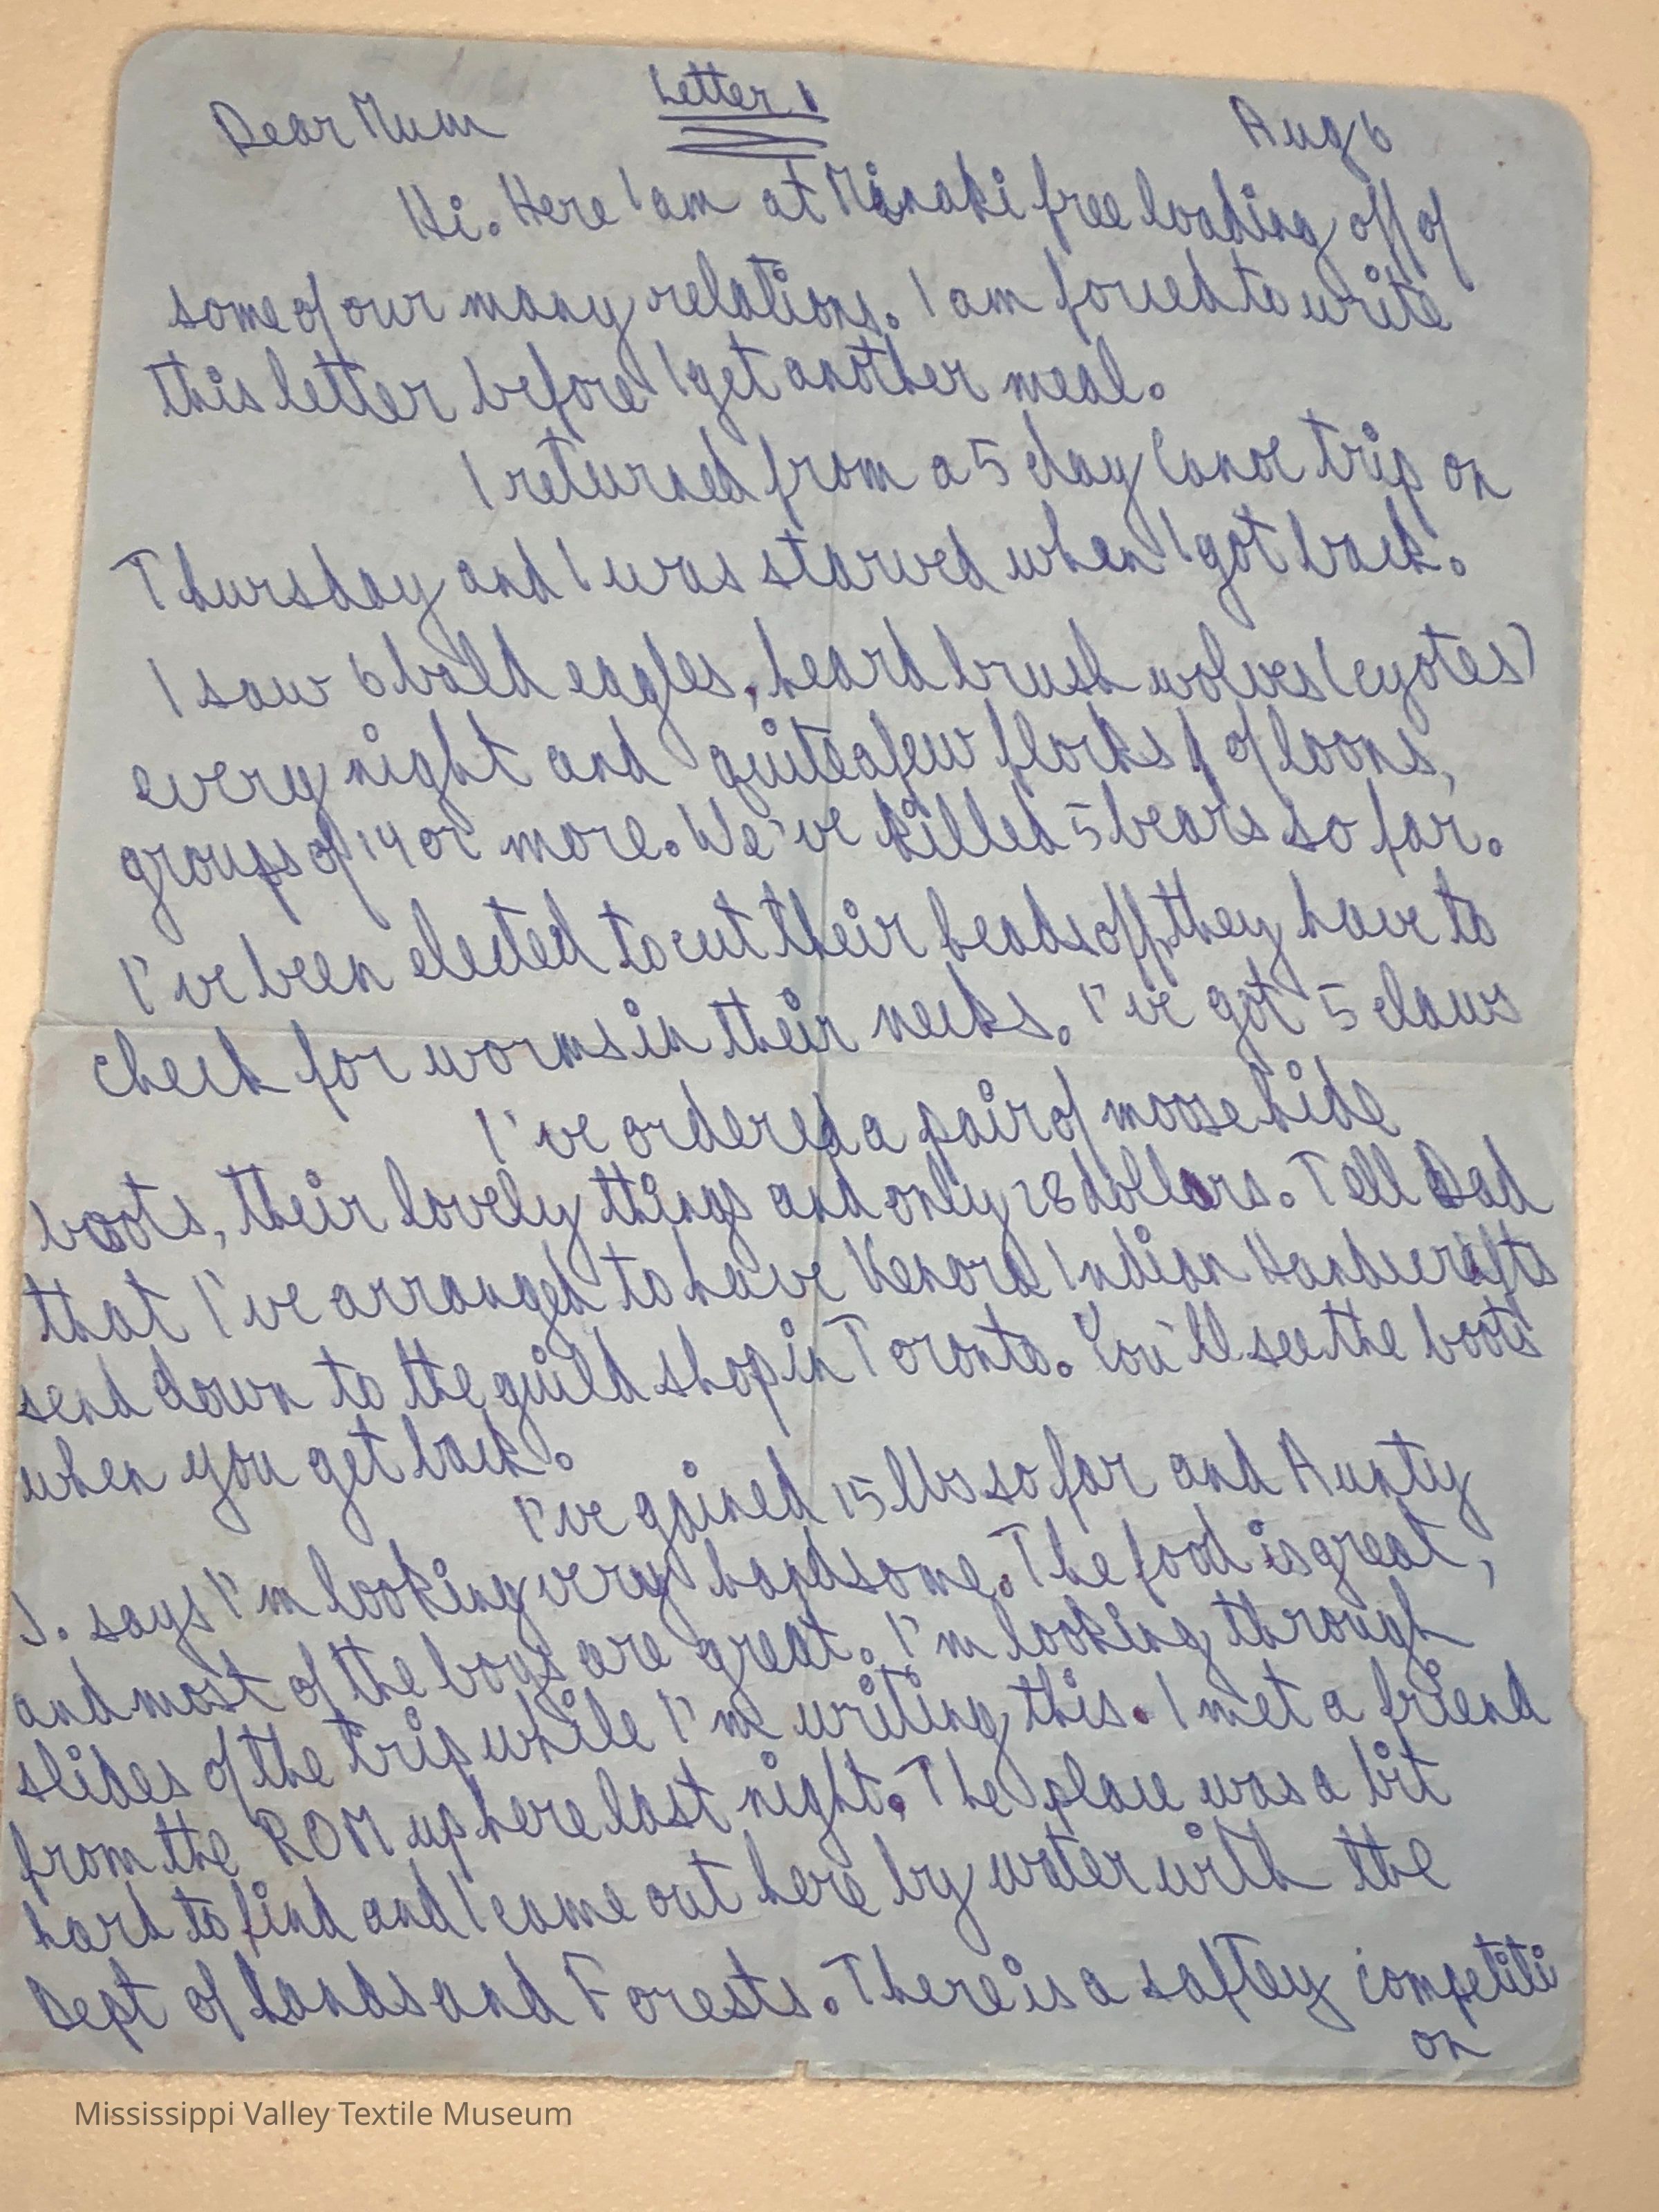 Letter 1
Dear Mum Aug 6
Hi. Here I am at Minaki free loading off of
some of our many relations. I am forced to write
this letter before I get another meal.
I returned from a 5 day canoe trip on
Thursday and I was starved when I got back.
I saw 6 bald eagles, heard brush wolves (cyotes)
every night and quite a few flocks of loons,
groups of 14 or more. We've killed 5 bears so far.
I've been elected to cut their heads off, they have to
check for worms in their necks. I've got 5 claws
I've ordered a pair of moose hide
boots, their lovely things and only 28 dollars. Tell Dad
that I've arranged to have Kenora Indian Handicrafts
send down to the guild shop in Toronto. You'll see the boots
when you get back.
I've gained 15 lbs so far and Aunty
J. says I'm looking very handsome. The food is great,
and most of the boys are great. I'm looking through
slides of the trip while I'm writing this. I met a friend
from the ROM up here last night. The place was a bit
hard to find and I came out here by water with the
Dept of Lands and Forests. There is a saftey competiti
on
Mississippi Valley Textile Museum